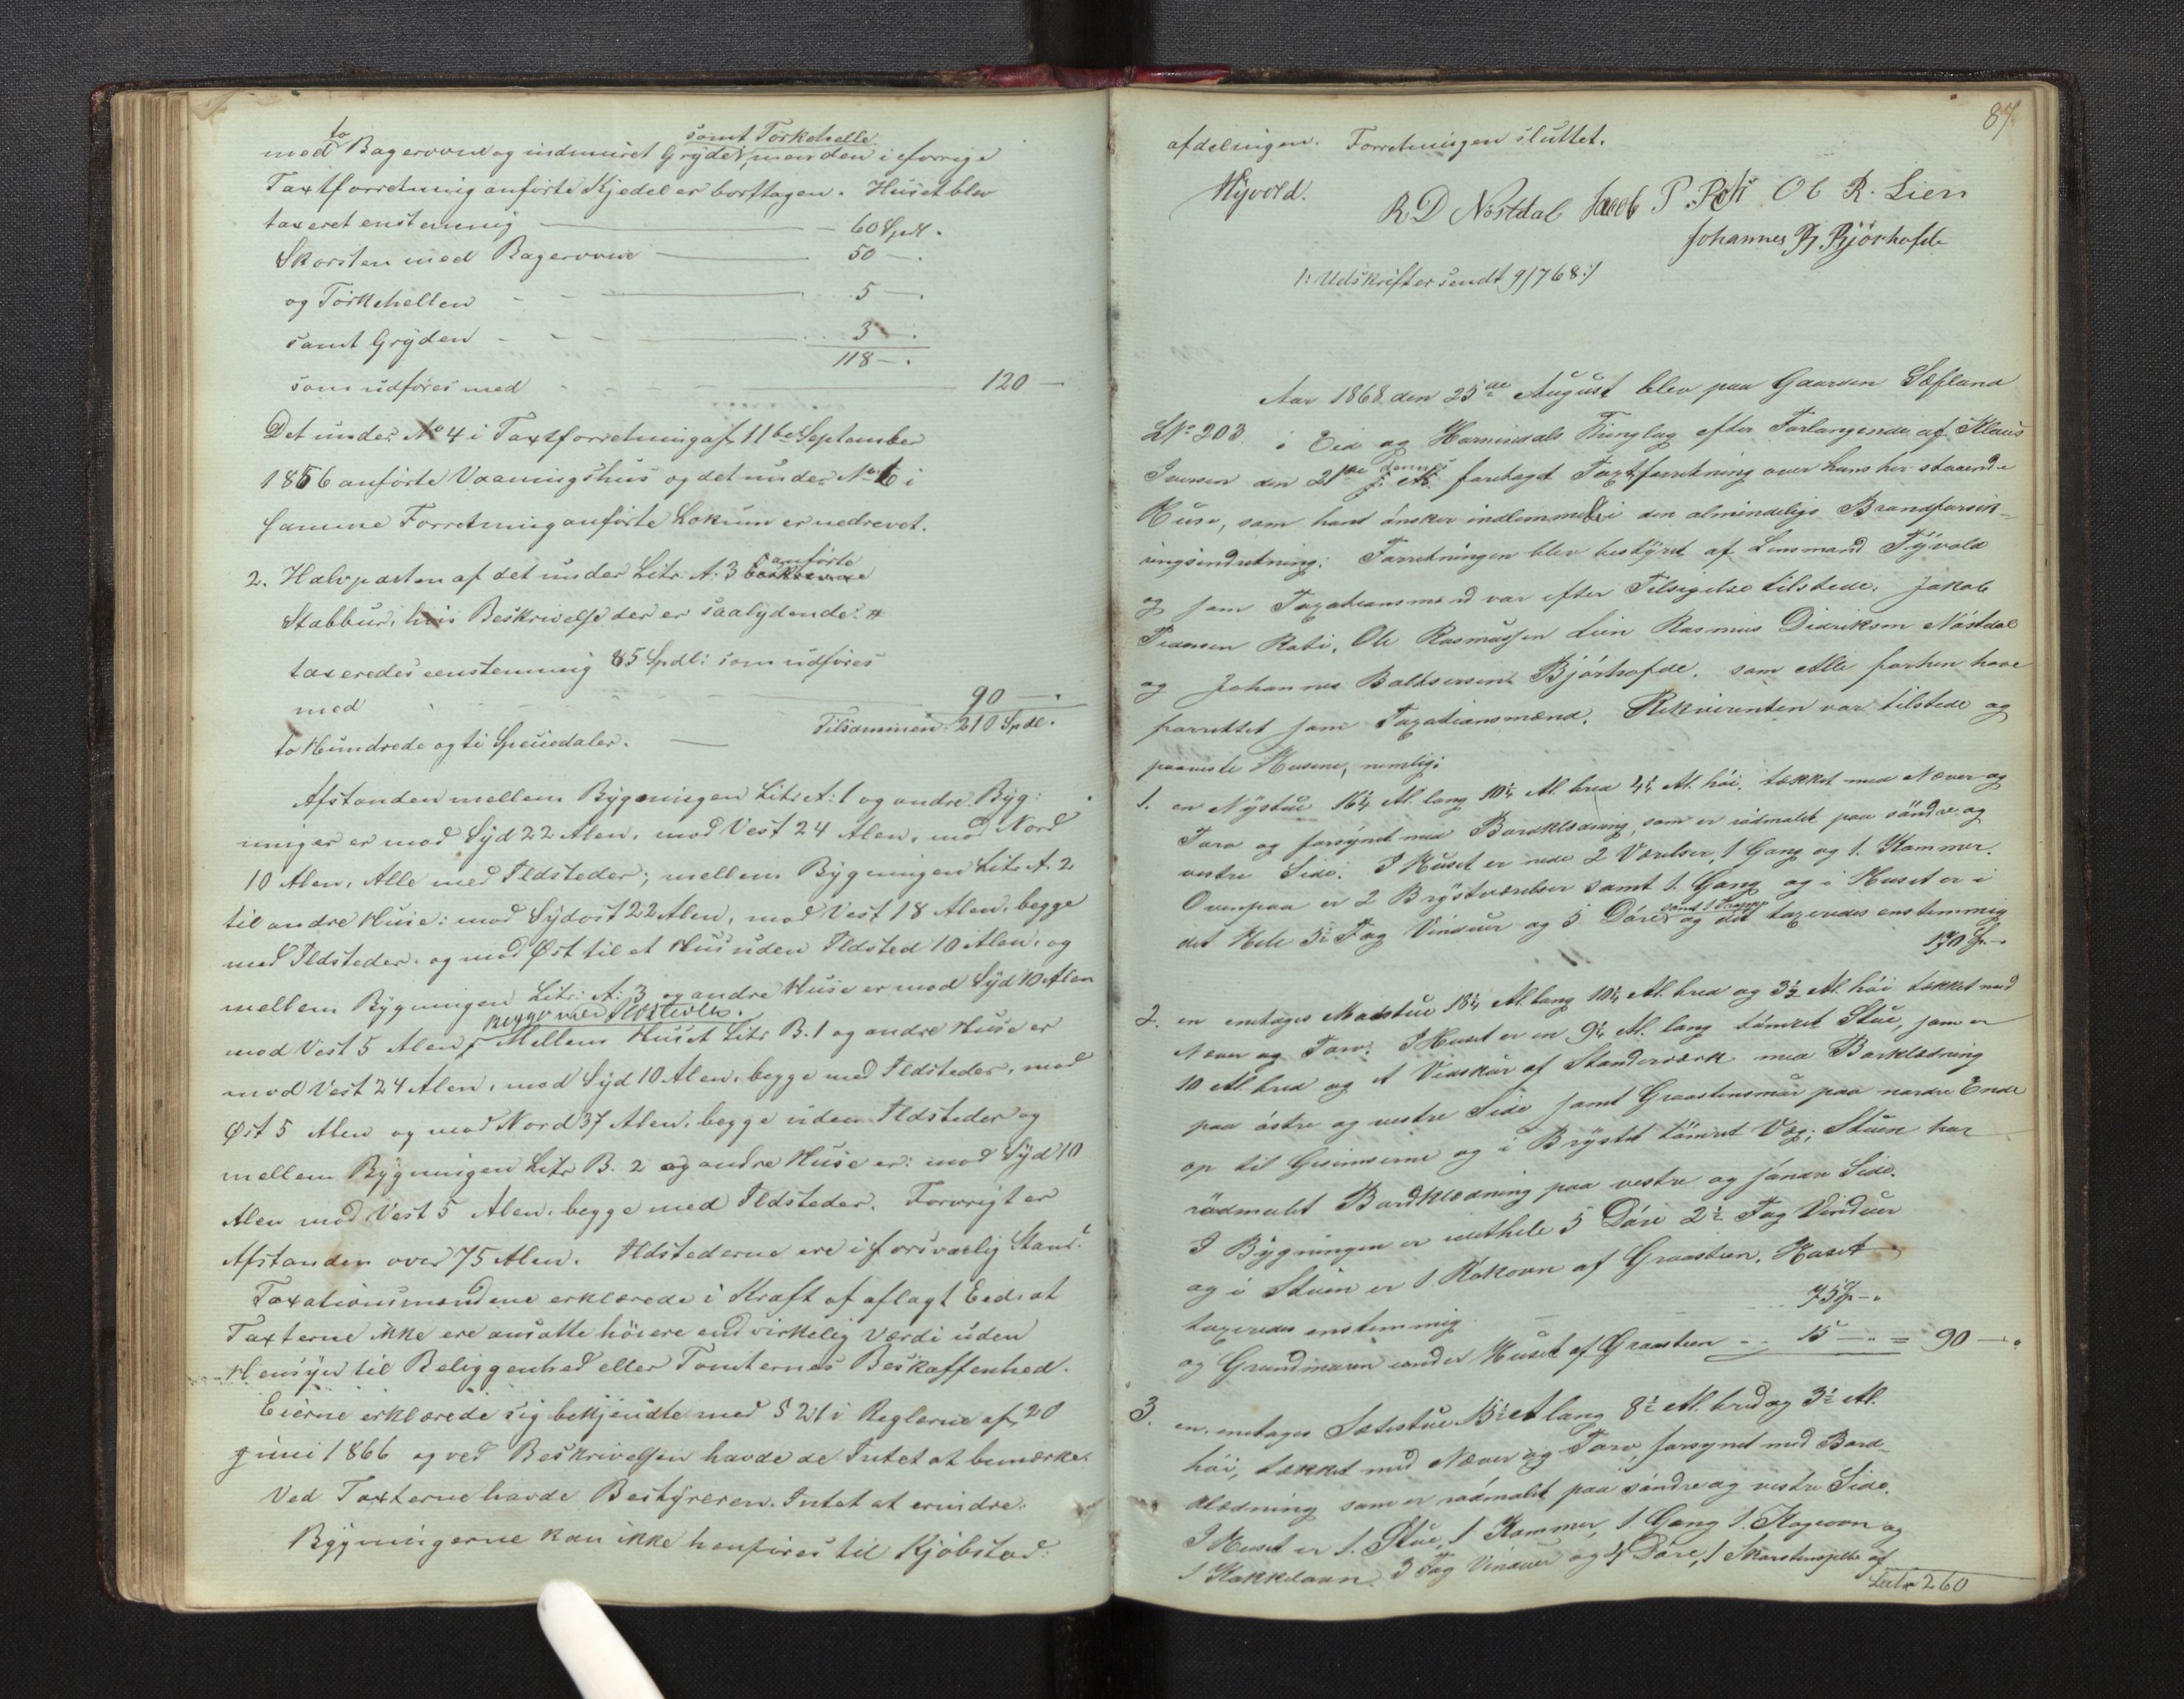 to samt Tørkehelle
med Bagerovne og indmuret Gryde, men den i forrige
Taxtforretning anførte Kjedel er borttagen. Huset blev
taxeret enstemmig — 60 Spdl.
Skorsten med Bagerovne — 50 —.
og Tørkehellen — 5 —.
samt Gryden — 3 —.
118 —.
som udføres med — 120 —
Det under No 4 i Taxtforretning af 11te September
1856 anførte Vaaningshus og det under No 6 i
samme Forretning anførte Lokum er nedrevet.
2. Halvparten af det under Litr. A. 3 anførte
Stabbur, hvis Beskrivelse der er saalydende:
taxeredes eenstemmig 85 Spdl: som udføres
med — 90 —.
Tilsammen 210 Spdl.
to Hundrede og ti Speciedaler. —
Afstanden mellem Bygningen Litr A: 1 og andre Byg:
ninger er mod Syd 22 Alen, mod Vest 24 Alen, mod Nord
10 Alen, Alle med Ildsteder; mellem Bygningen Litr. A. 2
til andre Huse: mod Sydost 22 Alen, mod Vest 18 Alen, begge
med Ildsteder, og mod Øst til et Hus uden Ildsted 10 Alen, og
mellem Bygningen Litr: A: 3 og andre Huse er mod Syd 10 Alen
begge med Ildsteder.
mod Vest 5 Alen, Mellem Huset Litr B. 1 og andre Huse er
mod Vest 24 Alen, mod Syd 10 Alen, begge med Ildsteder, mod
Øst 5 Alen og mod Nord 37 Alen, begge uden Ildsteder og
mellem Bygningen Litr B. 2 og andre Huse er: mod Syd 10
Alen mod Vest 5 Alen, begge med Ildsteder. Forøvrigt er
Afstanden over 75 Alen. Ildstederne ere i forsvarlig Stand.
Taxationsmændene erklærede i Kraft af aflagt Eed, at
Taxterne ikke ere ansatte høiere end virkelig Værdi uden
Hensyn til Beliggenhed eller Tomternes Beskaffenhed.
Eierne erklærede sig bekjendte med § 21 i Reglerne af 20
Juni 1866 og ved Beskrivelsen havde de Intet at bemærke.
Ved Taxterne havde Bestyreren Intet at erindre.
Bygningerne kan ikke henføres til Kjøbstad:
87.
afdelingen. Forretningen sluttet.
Myvold. R D Nøstdal Jacob P. Roti Ol R. Lien
Johannes B. Bjørhofde
/: Udskrifter sendt 9/7 68 :/
Aar 1868 den 25de August blev paa Gaarden Sæfland
LNo 203 i Eid og Hornindals Thinglag efter Forlangende af Klaus
Iversen den 21de dennes foretaget Taxtforretning over hans her staaende
Huse, som han ønsker indlemmede i den almindelige Brandforsik-
ringsindretning. Forretningen blev bestyret af Lensmand Myvold
og som Taxationsmænd var efter Tilsigelse tilstede: Jakob
Pedersen Roti, Ole Rasmussen Lien Rasmus Didriksen Nøstdal
og Johannes Baltsersen Bjørhofde, som Alle forhen have
forrettet som Taxationsmænd. Rekvirenten var tilstede og
paaviste Husene, nemlig:
1. en Nystue 16¼ Al. lang 10¼ Al. bred 4¼ Al. høi, tækket med Næver og
Torv og forsynet med Bordklædning, som er rødmalet paa søndre og
vestre Side. I Huset er nede 2 Værelser, 1 Gang og 1. Kammer.
Ovenpaa er 2 Brystværelser samt 1. Gang og i Huset er i
det Hele 5½ Fag Vinduer og 5 Døre samt 1 Trappe og det taxeredes enstemmig
170 Sp. —.
2. en enetages Madstue 18¼ Al. lang 10¼ Al. bred og 3½ Al. høi tækket med
Næver og Torv. I Huset er en 9¼ Al. lang tømret Stue, som er
10 Al. bred og et Vedskur af Standerværk med Bordklædning
paa østre og vestre Side samt Graastensmur paa nordre Ende
op til Gesimserne og i Brystet tømret Væg; Stuen har
rødmalet Bordklædning paa vestre og søndre Side.
I Bygningen er idethele 5 Døre 2½ Fag Vinduer
og i Stuen er 1. Rokovn af Graasteen, Huset
taxeredes enstemmig — 75 Sp —.
og Grundmuren under Huset af Graasteen — 15 —. = 90 —.
3. en enetages Sætestue 15½ Al lang 8½ Al. bred og 3½ Al.
høi, tækket med Næver og Torv, forsynet med Bord-
klædning som er rødmalet paa søndre og vestre Side.
I Huset er 1. Stue, 1 Kammer, 1. Gang 1. Kogeovn og
1 Kakkelovn. 3 Fag Vinduer og 4 Døre, 1 Skorstenspibe af
Latr 260